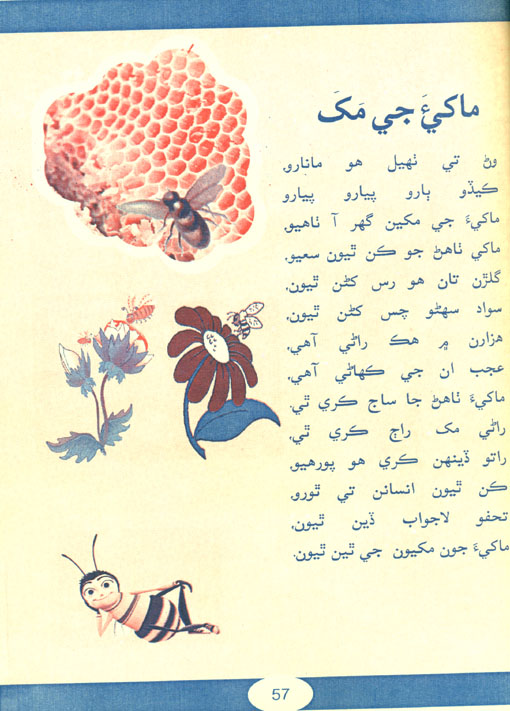 ماکيءَ جي مَکَ
وڻ تي ٺهيل هو مانارو،
ڪيڏو ٻارو پيارو پيارو
ماکيءَ جي مکين گهر آ ٺاهيو،
ماکي ٺاهڻ جو ڪن ٿيون سعيو،
گلڙن تان هو رس کڻن ٿيون،
سواد سهڻو چس کڻن ٿيون،
هزارن ۾ هڪ راڻي آهي،
عجب ان جي ڪهاڻي آهي،
ماکيءَ ٺاهڻ جا ساڄ ڪري ٿي،
راڻي مک راڄ ڪري ٿي،
راتو ڏينهن ڪري هو پورهيو،
ڪن ٿيون انسانن تي ٿورو،
تحفو لاجواب ڏين ٿيون،
ماکيءَ جون مکيون جي ٿين ٿيون.
57